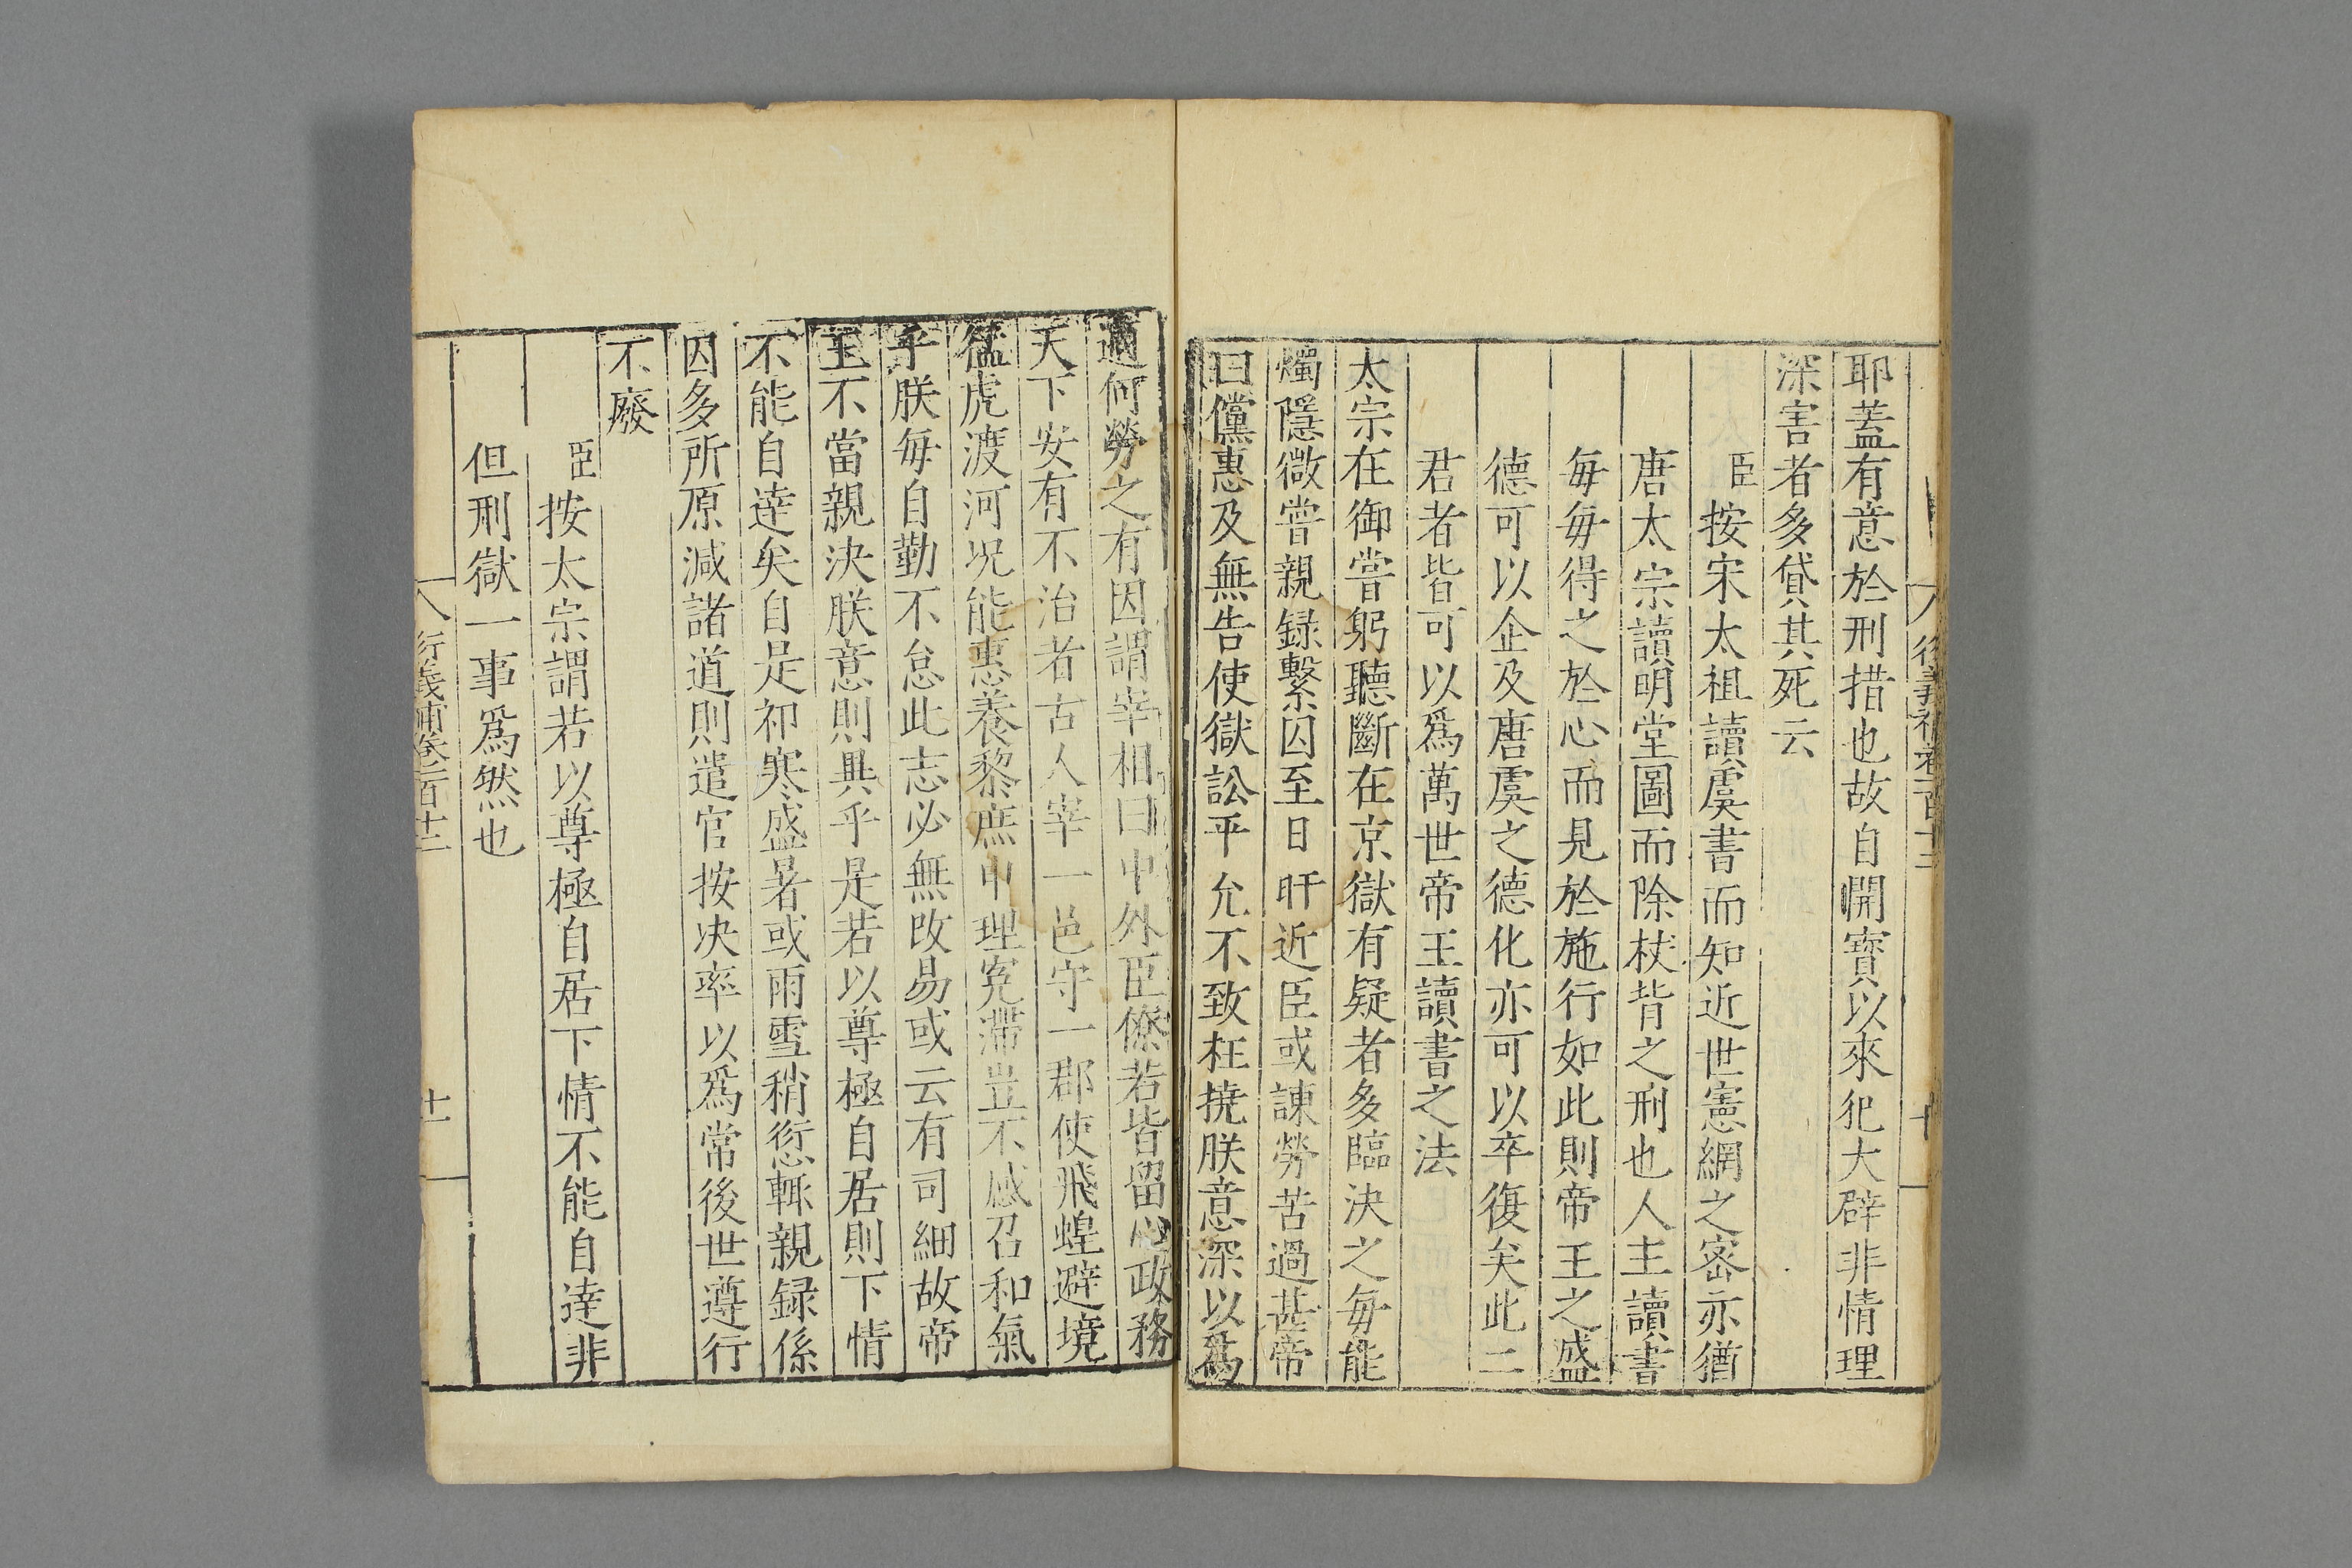 耶蓋有意於刑措也故自開寳以來犯大辟非情理
深害者多貸其死云
臣按宋太祖讀虞書而知近世憲網之密亦猶
唐太宗讀明堂圖而除杖背之刑也人主讀書
毎毎得之於心而見於施行如此則帝王之盛
德可以企及唐虞之德化亦可以卒復矣此二
君者皆可以爲萬世帝王讀書之法
太宗在御甞躬聽斷在京獄有疑者多臨決之毎能
燭隱微甞親録繫囚至日旰近臣或諌勞苦過甚帝
曰儻惠及無告使獄訟平允不致枉撓朕意深以爲
適何勞之有因謂宰相曰中外臣僚若皆留心政務
天下安有不治者古人宰一邑守一郡使飛蝗避境
猛虎渡河况能惠養黎庶申理寃滯豈不感召和氣
乎朕毎自勤不怠此志必無改易或云有司細故帝
王不當親決朕意則異乎是若以尊極自居則下情
不能自逹矣自是祁寒盛暑或雨雪稍愆輒親録係
囚多所原減諸道則遣官按决率以爲常後世遵行
不廢
臣按太宗謂若以尊極自居下情不能自逹非
但刑獄一事爲然也
衍義補卷一百十三
十一